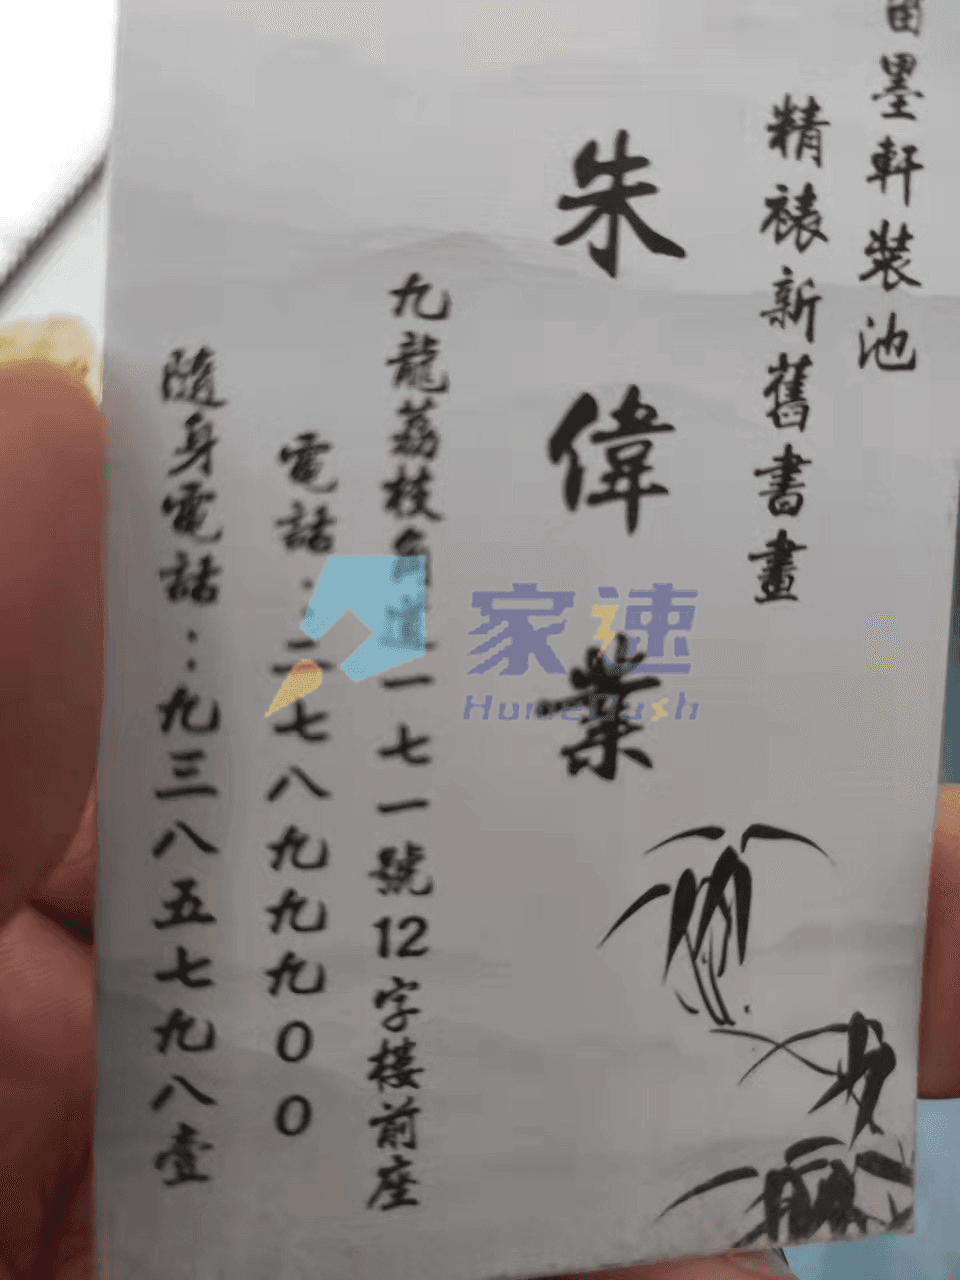 墨軒裝池
精裱新舊書畫
朱偉業
九龍荔枝角道一七一號12字楼前座
電話：二七八九九九00
隨身電話：九三八五七九八壹
家速
HomeRush